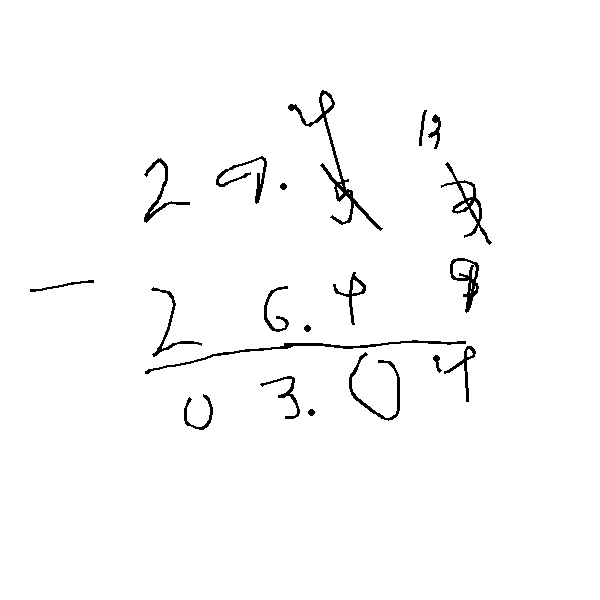 4 13
29.53
- 26.49
03.04